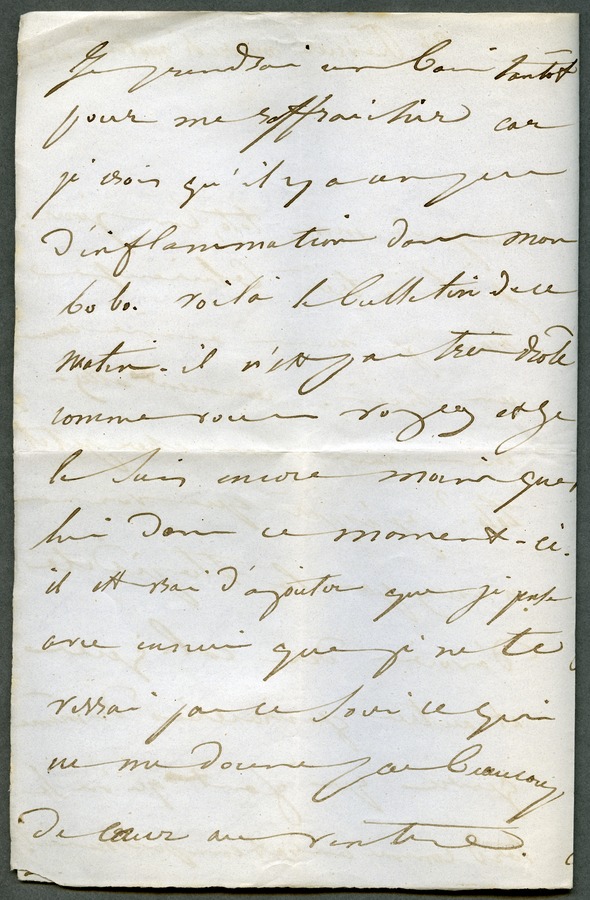 Je prendrai un bain tantôt
pour me raffraichir car
je crois qu'il y a un peu
d'inflammation dans mon
bobo. voilà le bulletin de ce
matin. il n'est pas très drôle
comme vous voyez et je
le suis encore moins que
lui dans ce moment-ci.
il est vrai d'ajouter que je pense
avec ennui que je ne te
verrai pas ce soir ce qui
ne me donne pas beaucoup
de cœur au ventre.